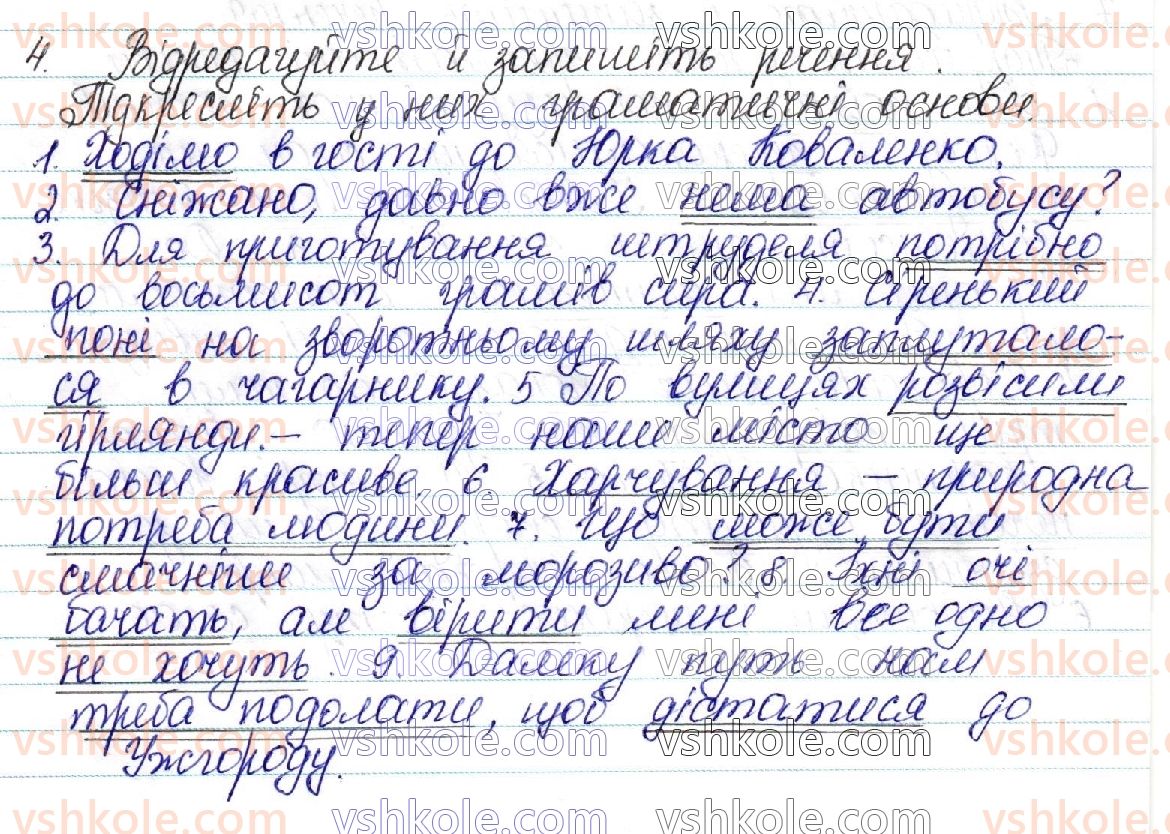 4. Відредагуйте й запишіть речення.
Підкресліть у них граматичні основи.
1. Ходімо в гості до Юрка Коваленко.
2. Сніжано, давно вже нема автобусу?
3. Для приготування штруделя потрібно
до восьмисот грамів сира. 4. Сіренький
поні на зворотньому шляху заплутало-
ся в чагарнику. 5 По вулицях розвісили
гірлянди. – тепер наше місто ще
більш красиве. 6 Харчування – природна
потреба людини. 7. Що може бути
смачніш за морозиво? 8. Їхні очі
бачать, але вірити мені все одно
не хочуть. 9. Далеку путь нам
треба подолати, щоб дістатися до
Ужгороду.
vshkole.com